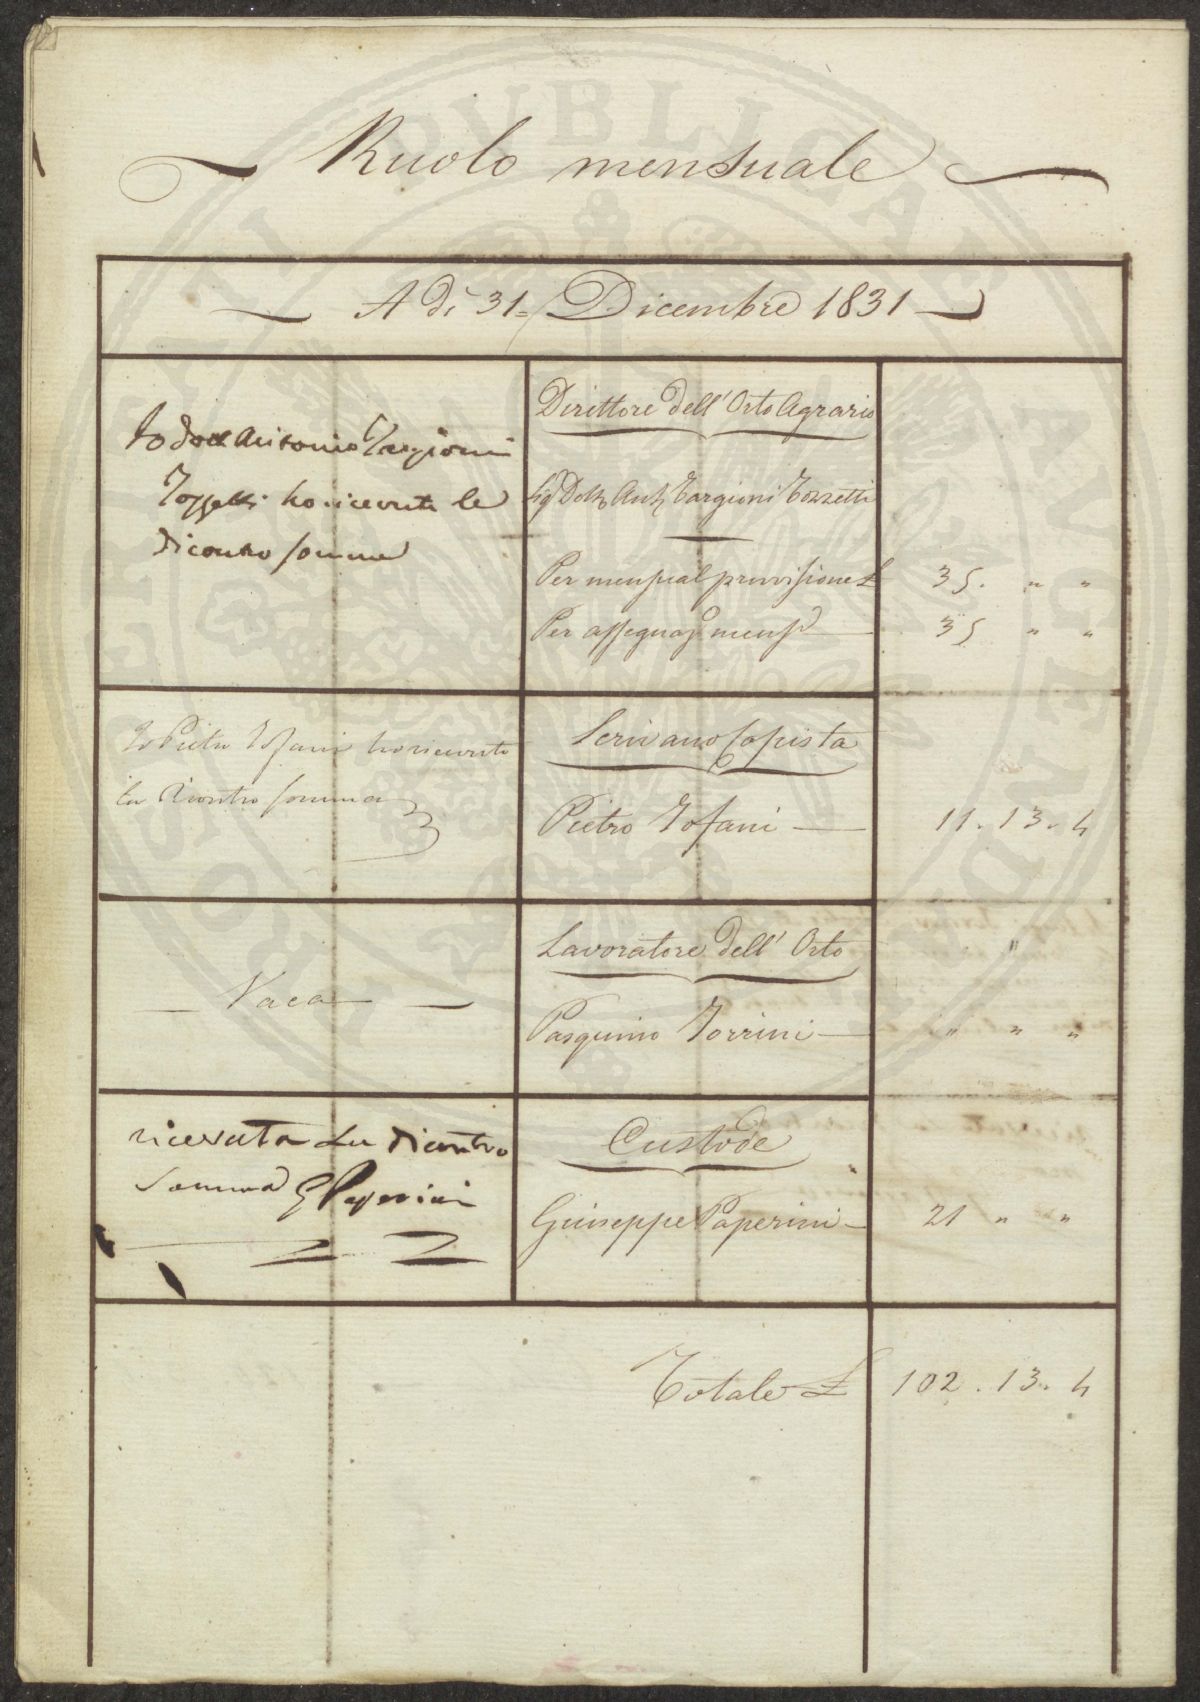 Ruolo mensuale
A dì 31 = Dicembre 1831
Io Dott Antonio Targioni
Tozzetti ho ricevuto le
dicontro somme
Direttore dell' Orto Agrario
Sig Dott Ant Targioni Tozzetti
Per mensual provvisione £ 35. " "
Per assegnaz mens 35 " "
Io Pietro Tofani ho ricevuto
la dicontro somma
Scrivano Copista
Pietro Tofani 11. 13. 4
Vaca
Lavoratore dell' Orto
Pasquino Torrini " " "
ricevuta la dicontro
somma G Paperini
Custode
Giuseppe Paperini 21 " "
Totale £ 102. 13. 4